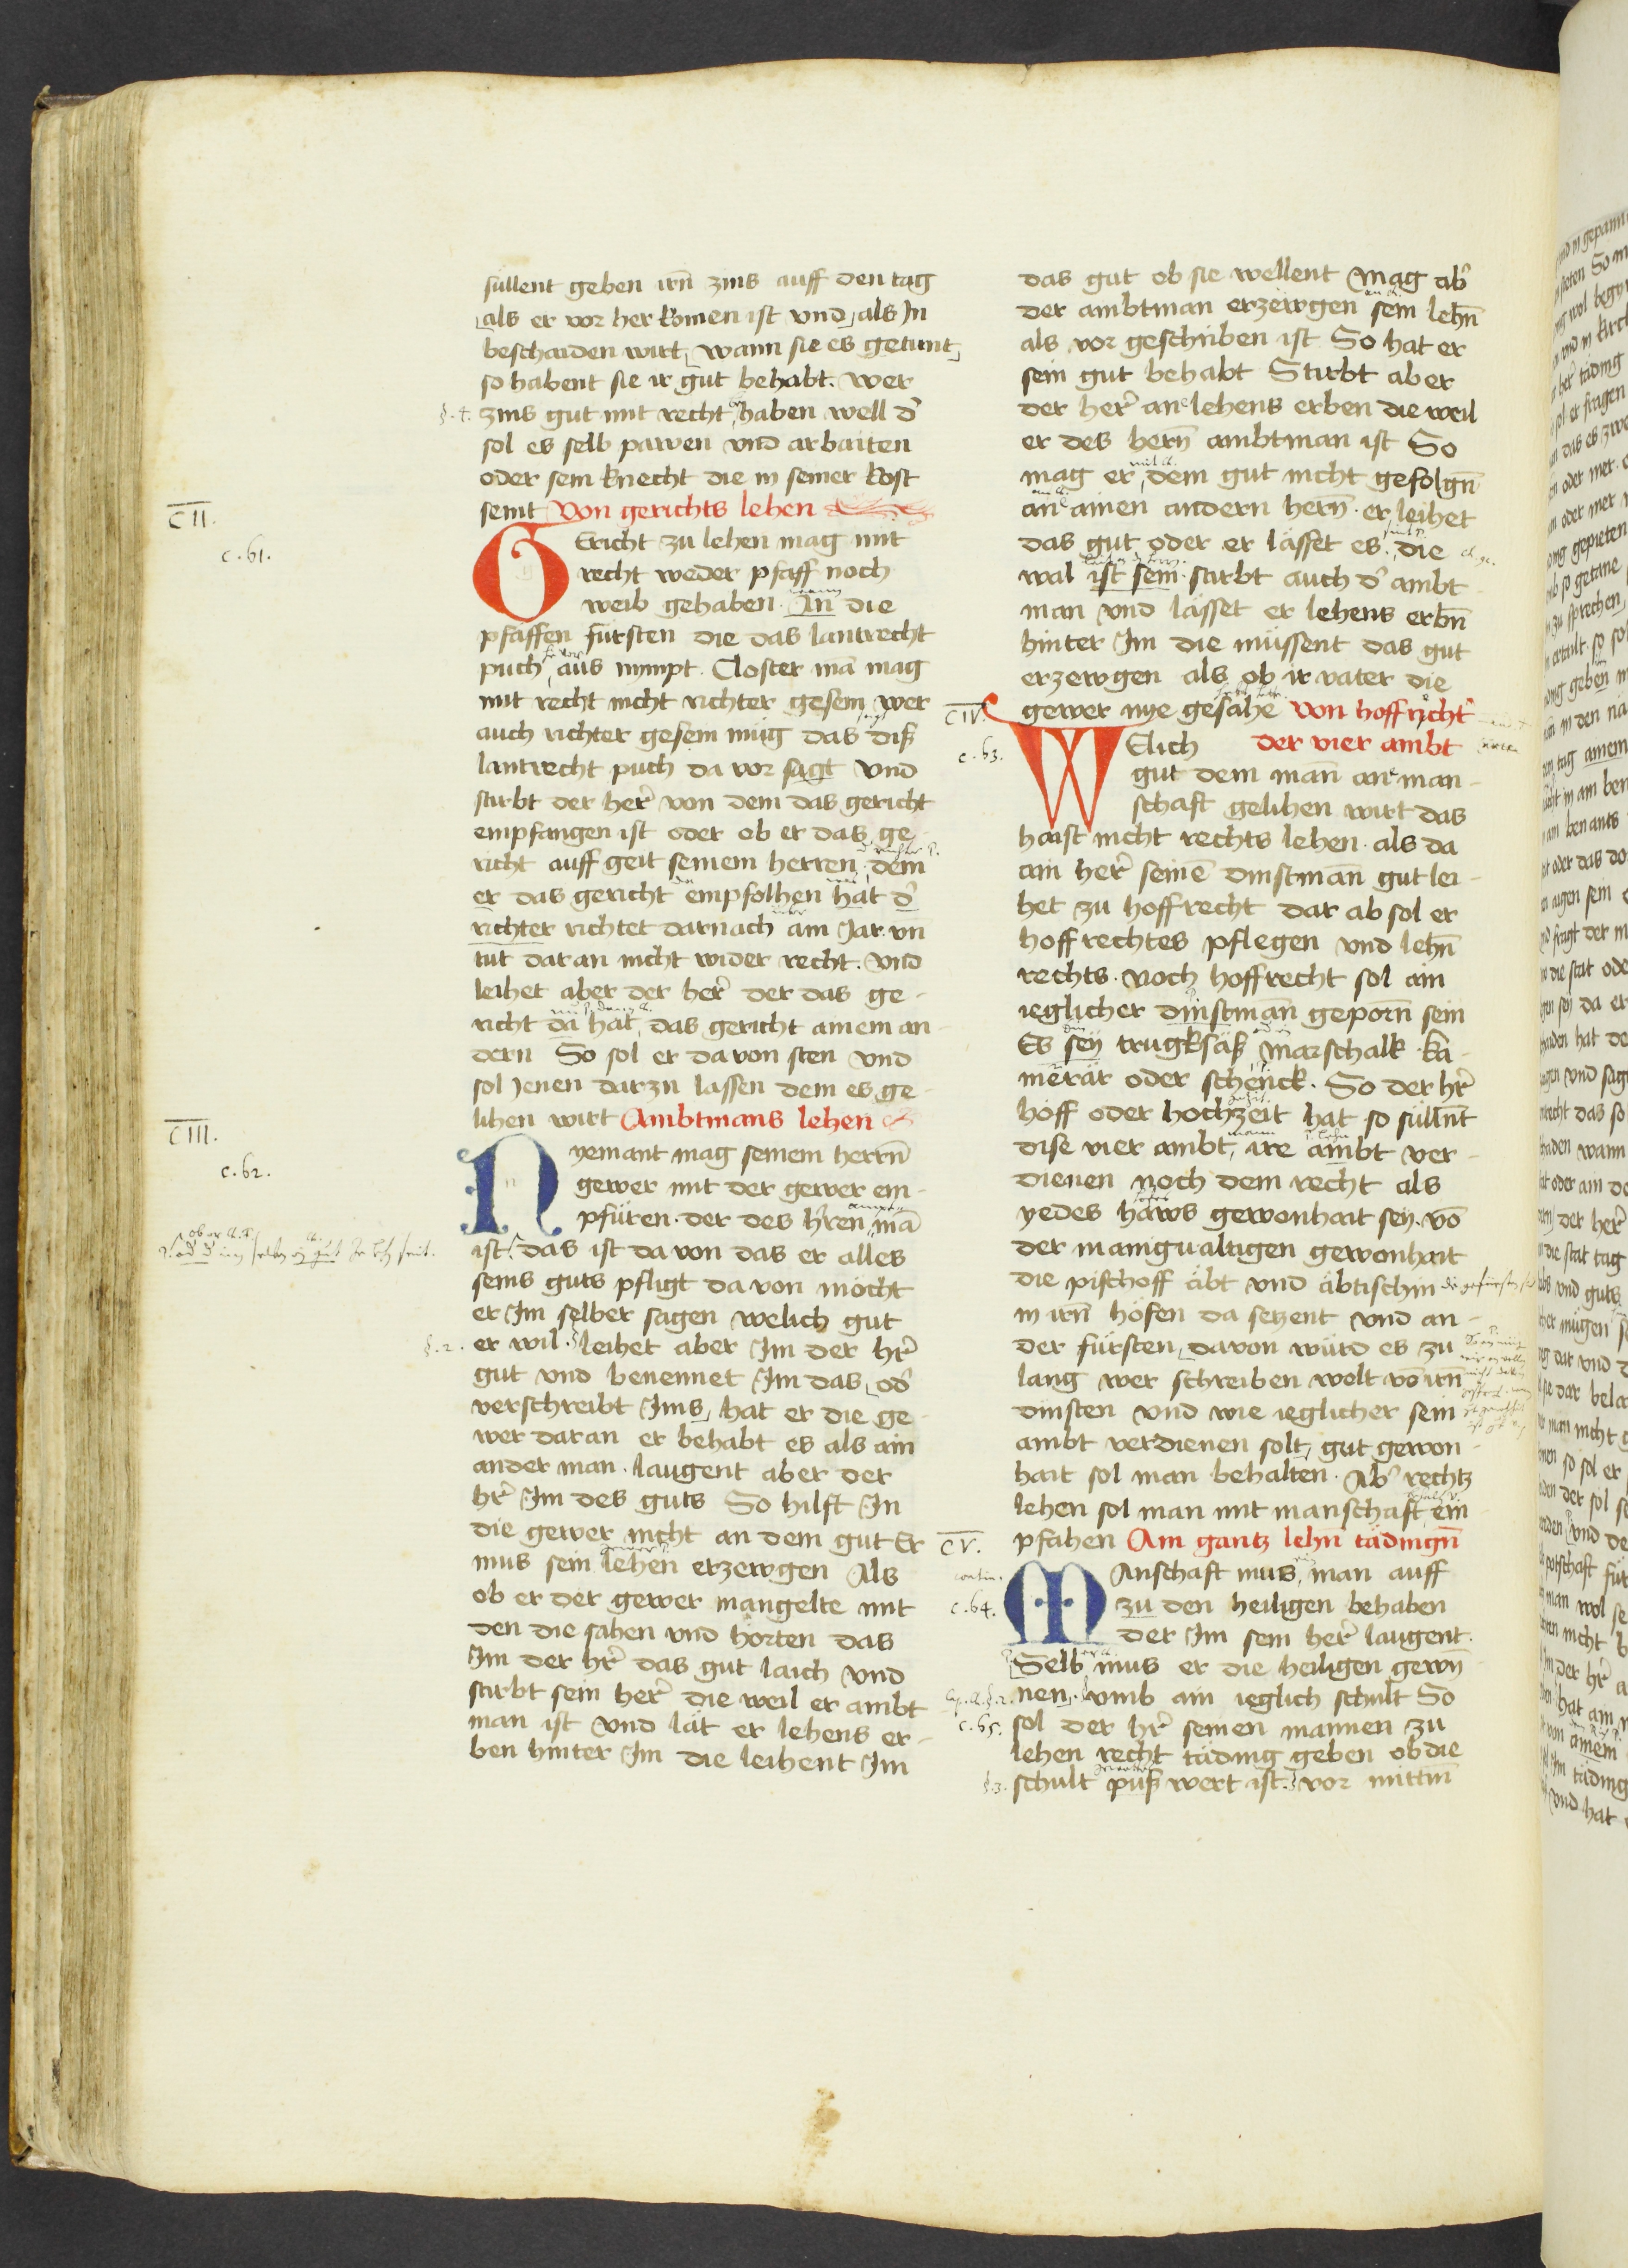 süllent geben irn̄ zins auff den tag
als er vor her komen ist vnd als In
beschaiden wirt wann sie es getunt
so habent sie ir gut behabt. wer
§. 4. zins gut mit recht haben well d'
sol es selb pawen vnd arbaiten
oder sein knecht die in seiner kost
seint Von gerichts lehen
CII.
c. 61.
Gericht zu lehen mag mit
recht weder pfaff noch
weib gehaben. An die
pfaffen fürsten die das lantrecht
puch aus nympt. Closter mā mag
mit recht nicht richter gesein wer
auch richter gesein müg das diß
lantrecht puch da vor sagt vnd
stirbt der her' von dem das gericht
empfangen ist oder ob er das ge-
richt auff geit seinem herren dem
er das gericht empfolhen hat d'
richter richtet darnach ain Jar. vn̄
tut daran nicht wider recht. vnd
leihet aber der her' der das ge-
richt da hat das gericht ainem an-
dern So sol er da von sten vnd
sol Jenen darzu lassen dem es ge-
lihen wirt Ambtmans lehen
CIII.
c. 62.
Nyemant mag seinem herrn̄
gewer mit der gewer em-
pfüren. der des h'ren mā
ist. das ist da von das er alles
seins guts pfligt da von möcht
er Im selber sagen welich gut
§. 2. er wil. leihet aber Im der hr'
gut vnd benennet Im das od'
verschreibt Ims hat er die ge-
wer daran er behabt es als ain
ander man. laugent aber der
hr' Im des guts So hilft In
die gewer nicht an dem gut Er
mus sein lehen erzewgen Als
ob er der gewer mangelte mit
den die sahen vnd horten das
Im der hr' das gut laich vnd
stirbt sein her' die weil er ambt
man ist vnd lāt er lehens er-
ben hinter Im die leihent Im
das gut ob sie wellent Mag ab'
der ambtman erzewgen sein lehn̄
als vor geschriben ist So hat er
sein gut behabt Stirbt aber
der her' an lehens erben die weil
er des hern̄ ambtman ist So
mag er dem gut nicht gefolgn̄
an ainen andern hern̄. er leihet
das gut oder er lässet es. die
wal ist sein. stirbt auch d' ambt
man vnd lässet er lehens erbn̄
hinter Im die müssent das gut
erzewgen als ob ir vater die
CIV. gewer nye gesahe von hoffricht'
c. 63.
Welich der vier ambt
gut dem man̄ an man-
schaft gelihen wirt das
haist nicht rechts lehen. als da
ain her' seinē dinstman̄ gut lei-
het zu hoffrecht dar ab sol er
hoffrechtes pflegen vnd lehn̄
rechts. noch hoffrecht sol ain
ieglicher dinstman̄ geporn̄ sein
Es sey trugksäß marschalk. ka-
merär oder schenck. So der hr'
hoff oder hochzeit hat so sülln̄t
dise vier ambt ire ambt ver-
dienen noch dem recht als
yedes haws gewonhait sey. vō
der manigualtigen gewonhait
die pischoff äbt vnd äbtischin
in irn̄ höfen da setzent vnd an-
der fürsten davon würd es zu
lang wer schreiben wolt vō irn̄
dinsten vnd wie ieglicher sein
ambt verdienen solt gut gewon-
hait sol man behalten. Ab' rechtz
lehen sol man mit manschaft em-
CV. pfahen Ain gantz lehn̄ tädingn̄
c. 64.
Manschaft mus man auff
zu den heiligen behaben
der Im sein her' laugent.
Selb mus er die heiligen gewin-
nen. vmb ain ieglich schult So
c. 65. sol der hr' seinen mannen zu
lehen recht täding geben ob die
§. 3. schult puß wert ist. vor mittm̄